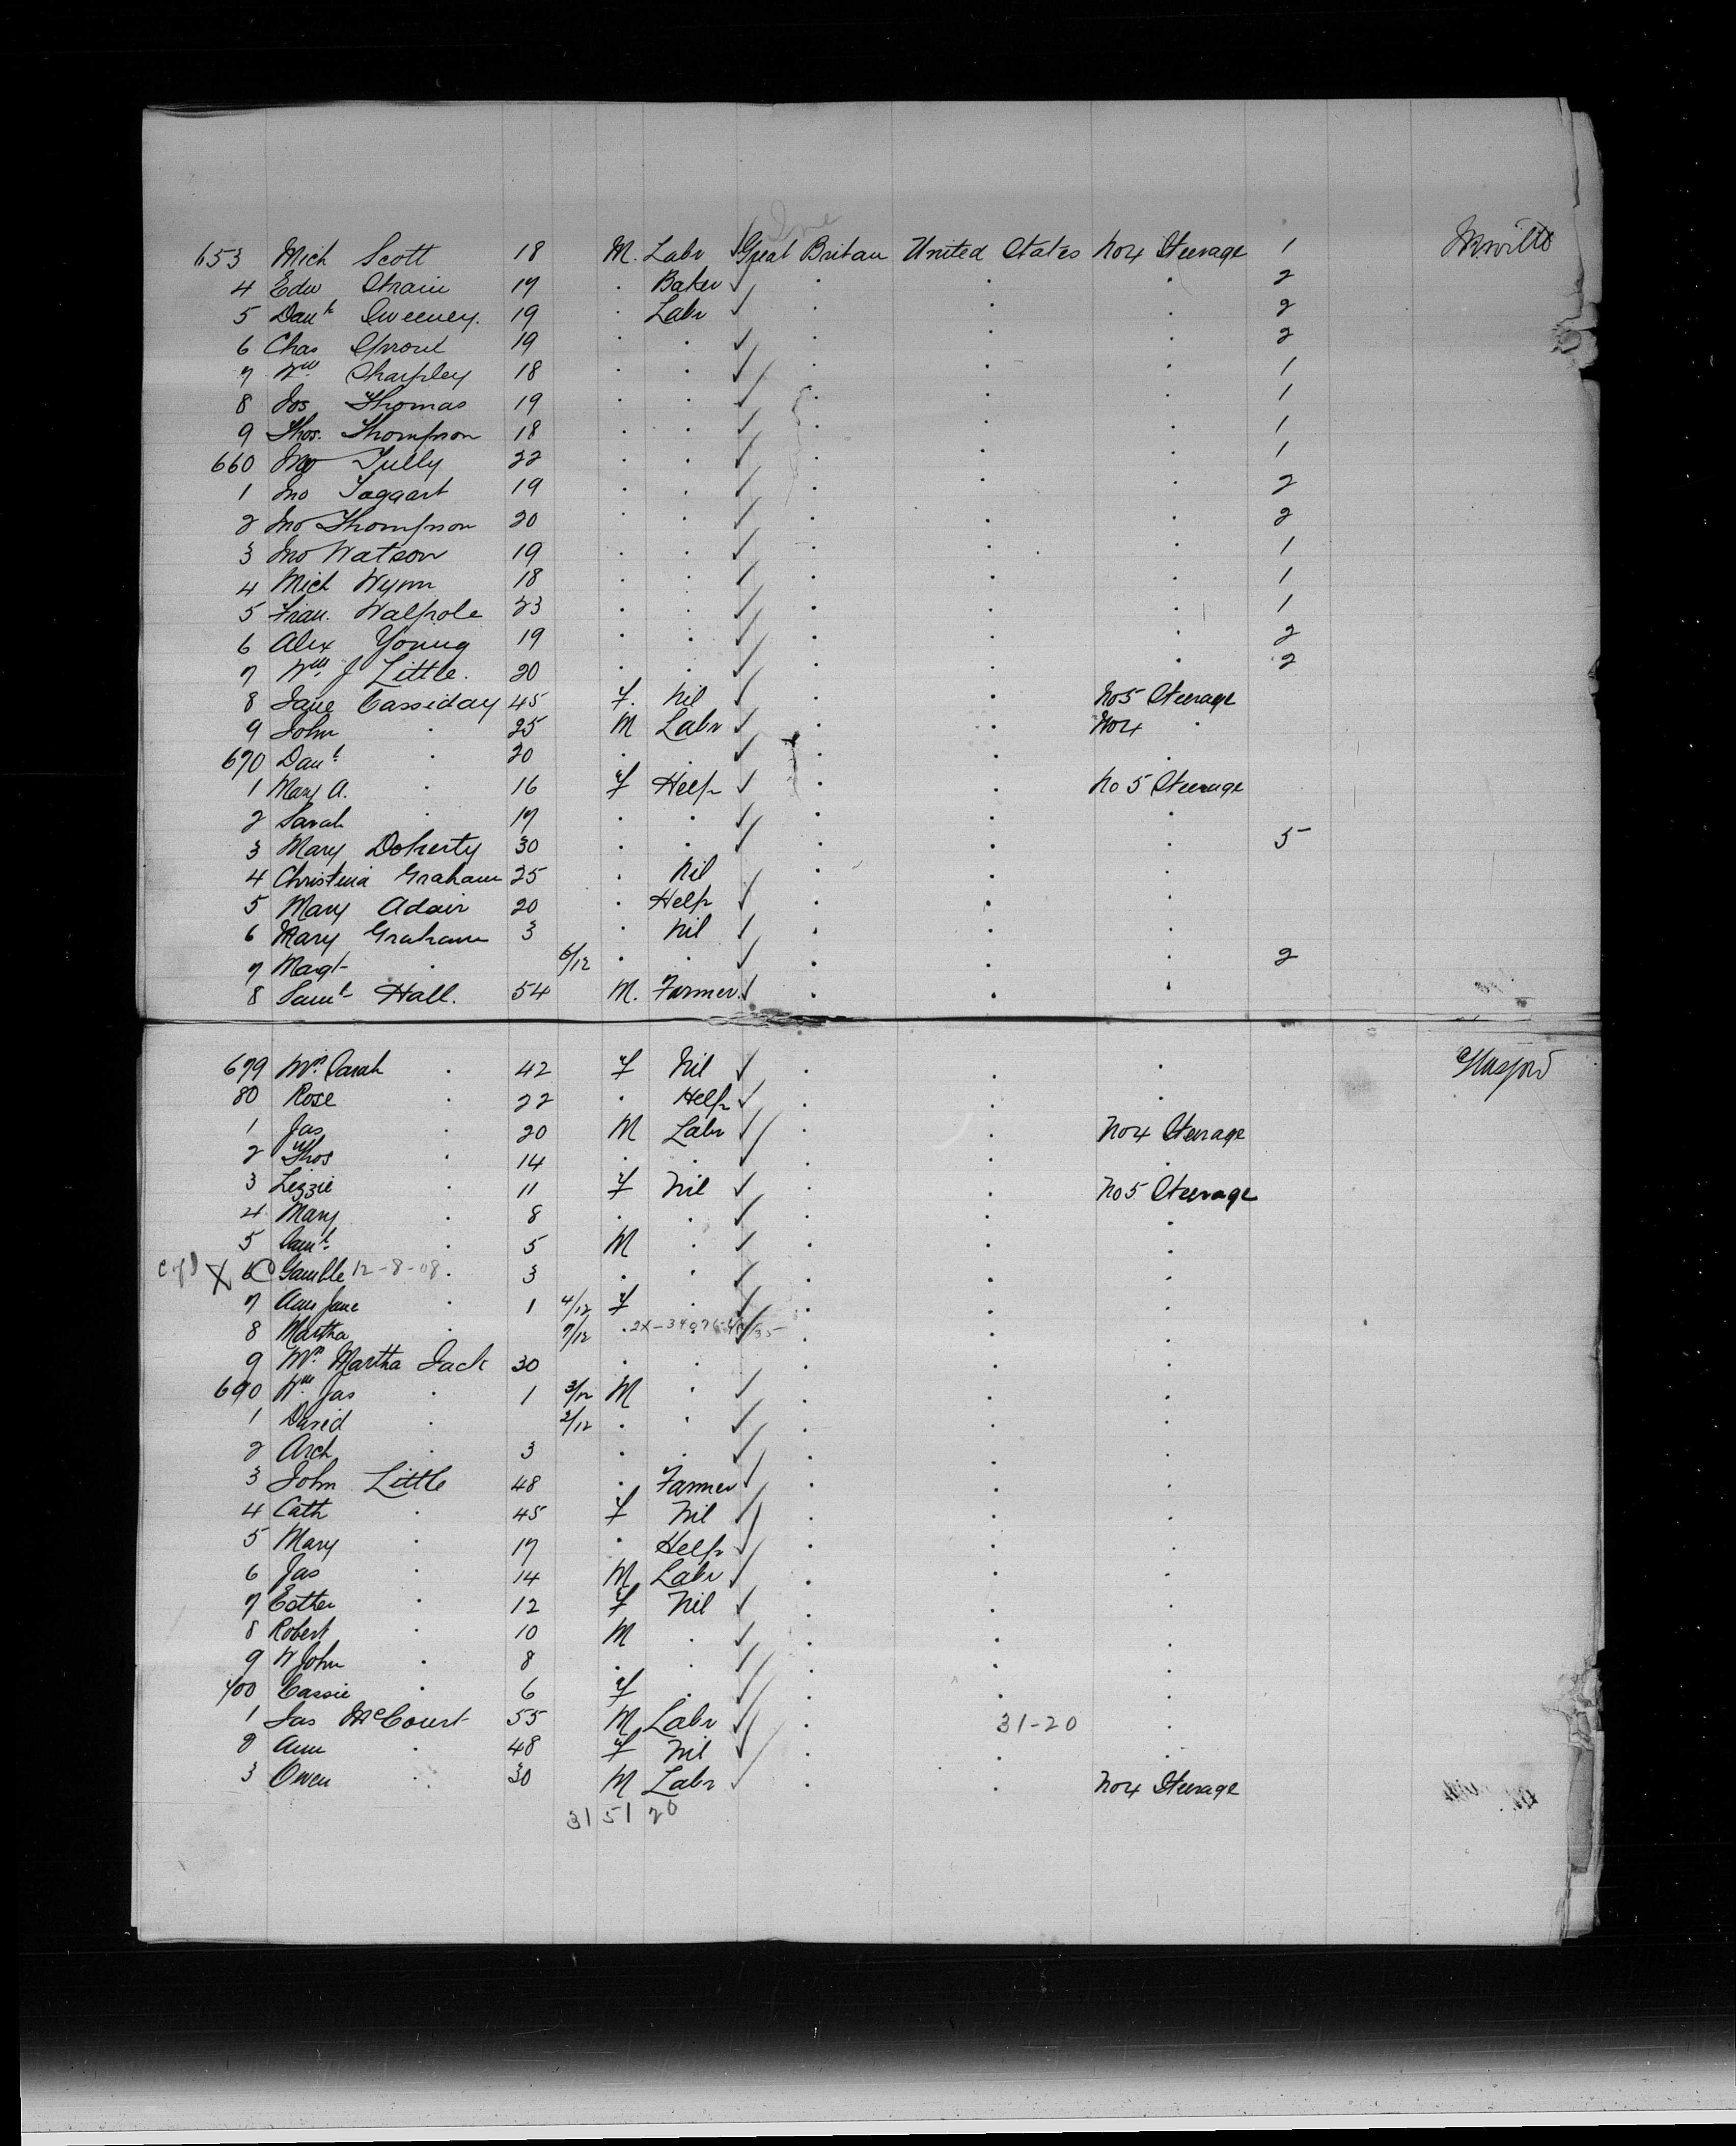 653 Mich Scott 18 M. Labr Great Britan United States No4 Steerage 1
4 Edw Strain 17 . Baker . . . 2
5 Danl Sweeney. 19 . Labr . . . 2
6 Chas Sproul 19 . . . . . 2
7 Wm Sharpley 18 . . . . . 1
8 Jos Thomas 19 . . . . . 1
9 Thos. Thompson 18 . . . . . 1
660 Jno Tully 22 . . . . . 1
1 Jno Taggart 19 . . . . . 2
2 Jno Thompson 20 . . . . . 2
3 Jno Watson 19 . . . . . 1
4 Mich Wynn 18 . . . . . 1
5 Fran. Walpole 23 . . . . . 1
6 Alex Young 19 . . . . . 2
7 Wm. J Little. 20 . . . . . 2
8 Jane Cassiday 45 F. Nil . . No5 Steerage
9 John . 25 M Labr . . No4 .
670 Danl . 20 . . . . .
1 Mary A. . 16 F Help . . No 5 Steerage
2 Sarah . 17 . . . . .
3 Mary Doherty 30 . . . . . 5
4 Christina Graham 25 . Nil . . .
5 Mary Adair 20 . Help . . .
6 Mary Graham 3 . Nil . . .
7 Margt . 6/12 . . . . . 2
8 Saml Hall. 54 M. Farmer. . . .
679 Mrs Sarah . 42 F Nil . . .
80 Rose . 22 . Help . . .
1 Jas . 20 M Labr . No4 Steerage
2 Thos . 14 . . . . .
3 Lizzie . 11 F Nil . No5 Steerage
4 Mary . 8 . . . . .
5 Saml . 5 M . . . .
X 6 Gamble 12-8-08 . 3 . . . . .
7 Ann Jane . 1 4/12 F . . . .
8 Martha . 7/12 . . . .
9 Mrs Martha Jack 30 . . . . .
690 Wm Jas . 1 3/12 M . . . .
1 David . 2/12 . . . . .
2 Arch . 3 . . . . .
3 John Little 48 . Farmer . . .
4 Cath . 45 F Nil . . .
5 Mary . 17 . Help . . .
6 Jas . 14 M Labr . . .
7 Esther . 12 F Nil . . .
8 Robert . 10 M . . . .
9 W John . 8 . . . . .
700 Cassie . 6 F . . . .
1 Jas McCourt 55 M Labr . 31-20 .
2 Ann . 48 F Nil . . .
3 Owen . 30 M Labr . . No4 Steerage
31 51 20